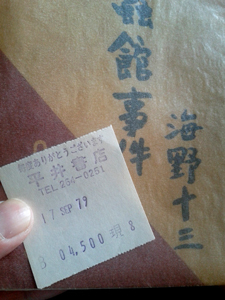 館事件
海野十三
毎度ありがとうございます
平井書店
TEL 294-0251
17 SEP 79
04,500 現 8